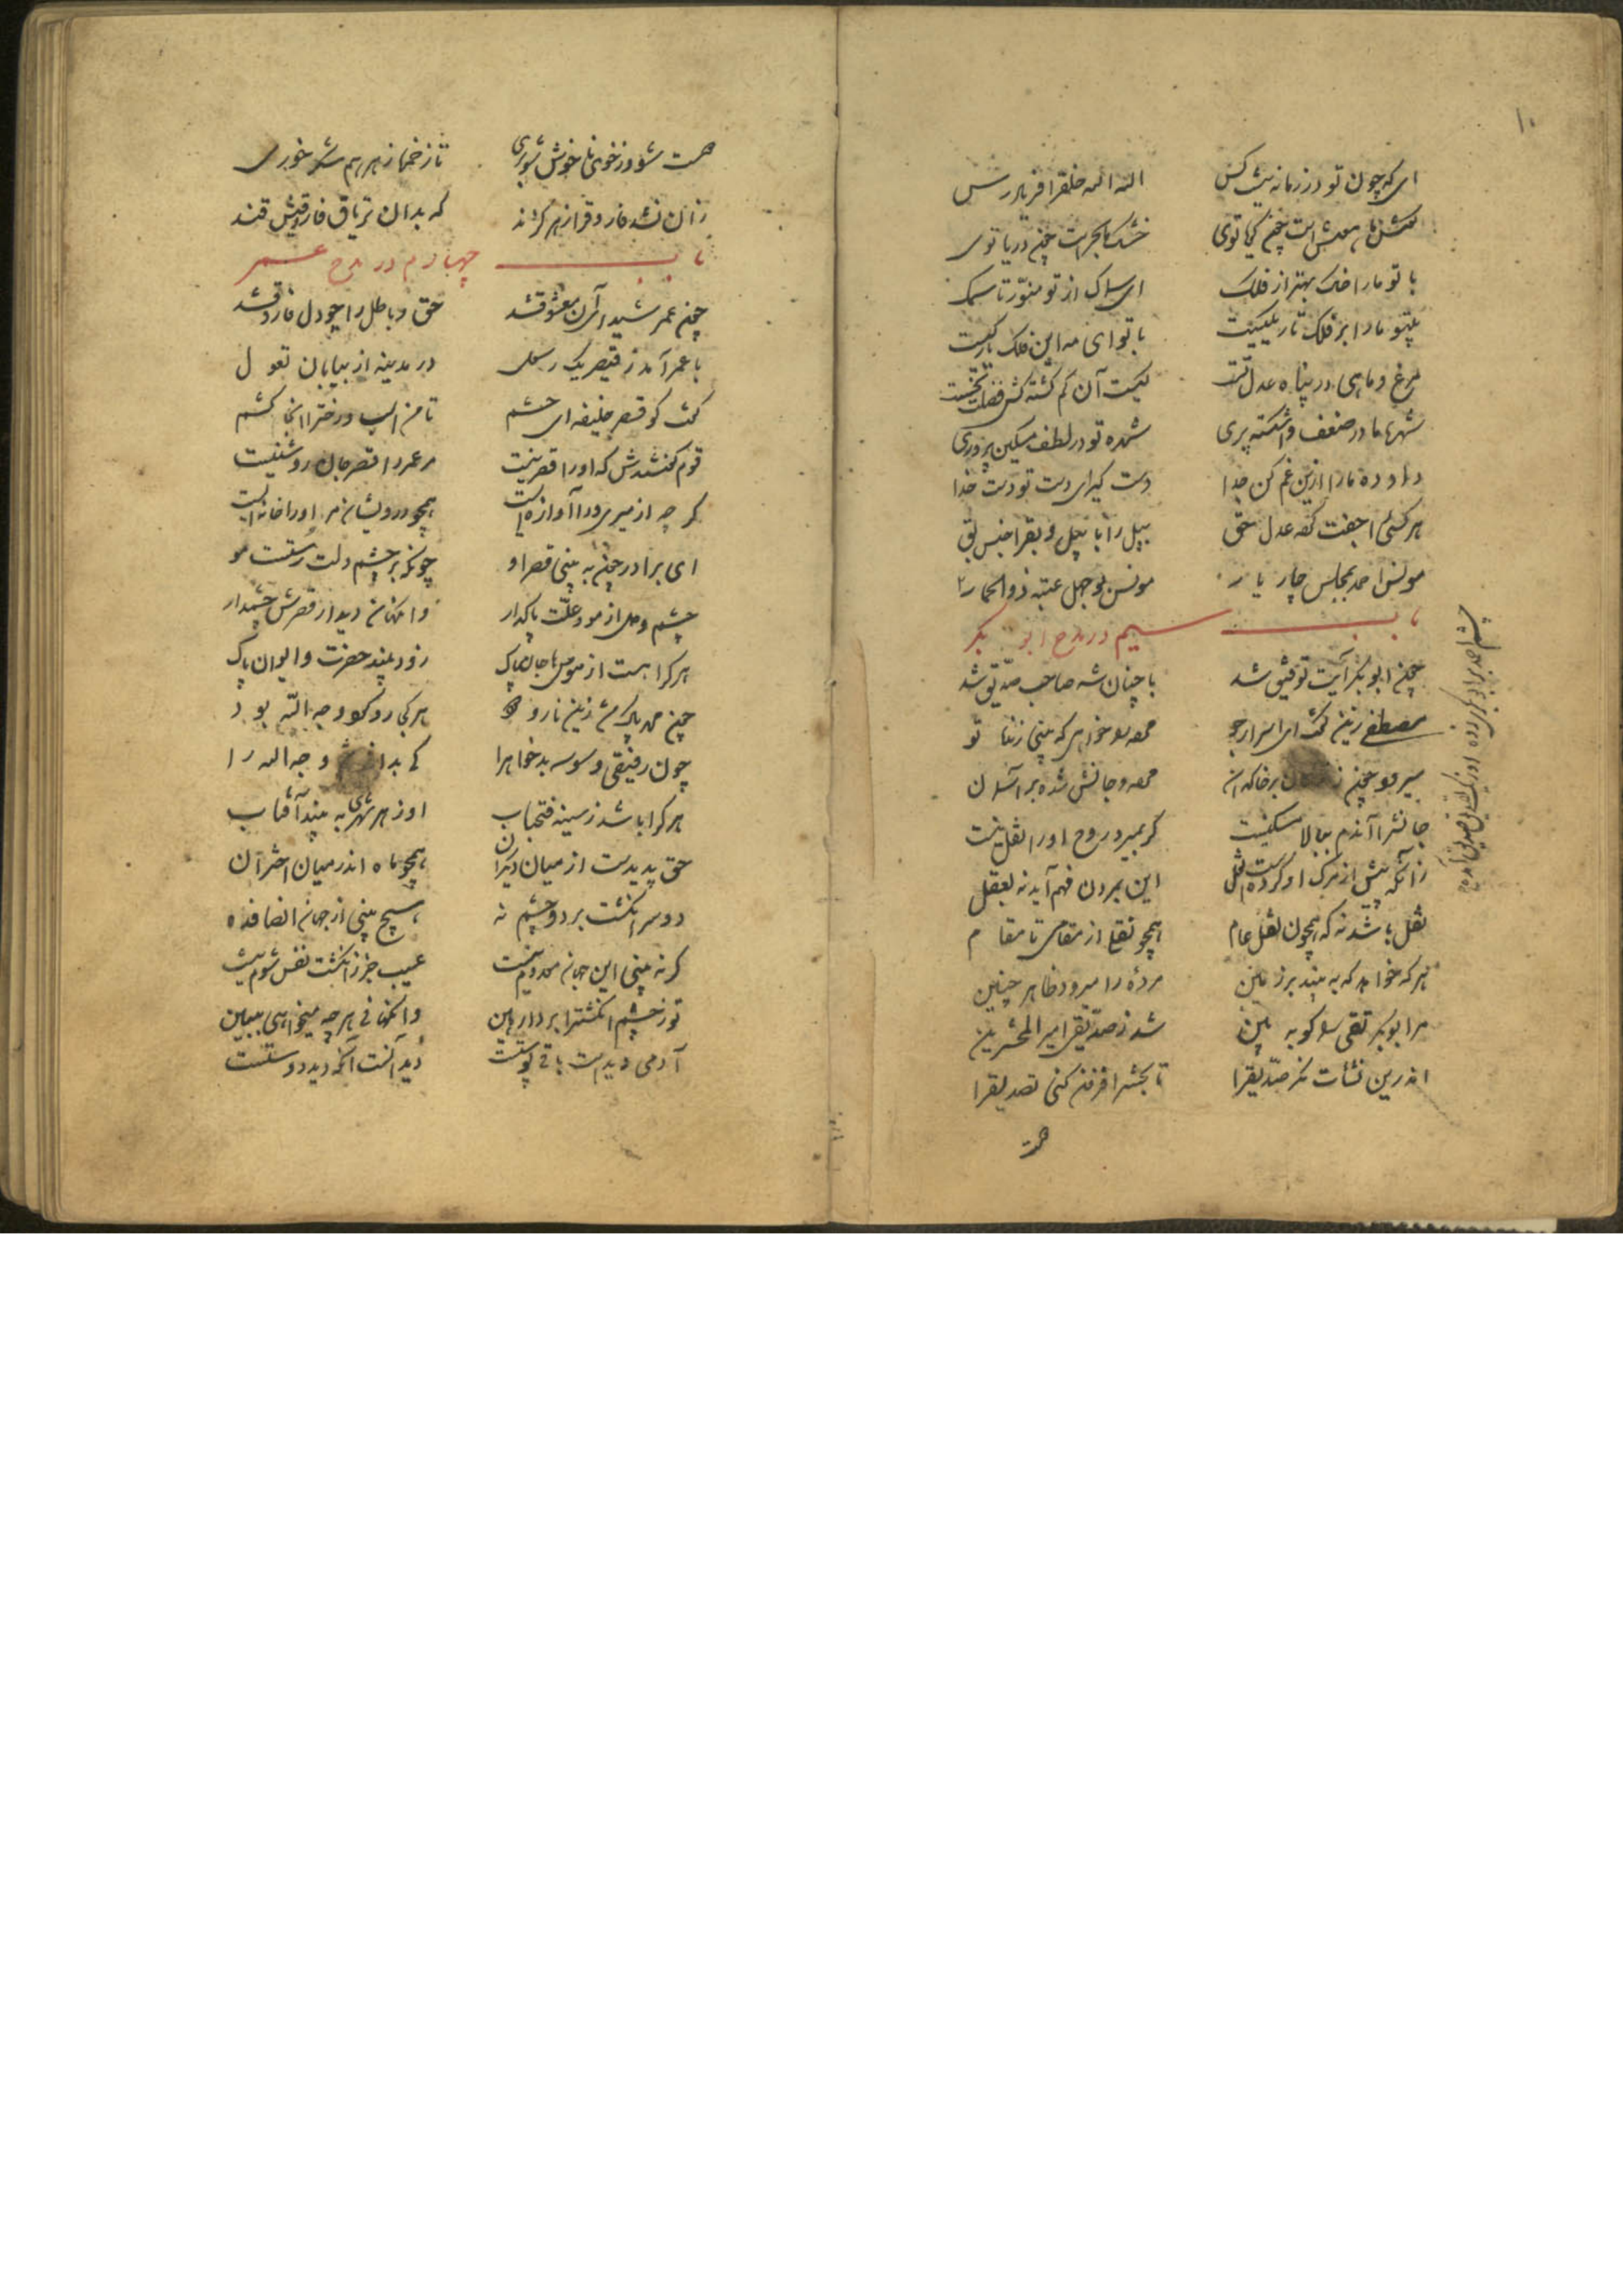 ۱۰
ای که چون تو در زمانه نیست کس الله الله خلق را فریاد رس
خشک ما بحریست چون دریا توی
با تو ما را خاک بهتر از فلک ای سماک از تو منور تا سمک
بیتو ما را بر فلک تاریکیست با تو ای مه این فلک باریکیست
مرغ و ماهی در پناه عدل تست کیست آن گم گشته کش فضلت نجست
شهره ما در ضعف و اشکسته پری شهره تو در لطف مسکین پروری
داد ده ما را ازین غم کن جدا دست گیر ای دست تو دست خدا
هر کسی را جفت کرده عدل حق پیل را با پیل و بق را جنس بق
مونس احمد بمجلس چار یار مونس بوجهل عتبه ذو الخمار
باب سیم در مدح ابو بکر
چون ابو بکر آیت توفیق شد با چنان شه صاحب صدیق شد
مصطفی زین گفت ای اسرار جو مرده را خواهی که بینی زنده تو
میرود چون زندگان بر خاکدان مرده و جانش شده بر آسمان
جانش را آندم ببالا مسکنیست گر بمیرد روح او را نقل نیست
زانکه پیش از مرگ او کردست نقل این بمردن فهم آید نه بعقل
نقل باشد نه که همچون نقل عام همچو نقلی از مقامی تا مقام
هر که خواهد که به بیند بر زمین مرده را میرود ظاهر چنین
مر ابو بکر تقی را گو به بین شد ز صدیقی امیر المحشرین
اندرین نشأت نگر صدیق را تا بحشر افزون کنی تصدیق را
هست
هست شو در خوی نا خوش
که بدان تریاق فاروقیش قند
باب چهارم در مدح عمر
چون عمر شیدای آن معشوق شد حق و باطل را چو دل فاروق شد
با عمر آمد ز قیصر یک رسول در مدینه از بیابان نغول
گفت کو قصر خلیفه ای حشم تا من اسب و رخت را آنجا کشم
قوم گفتندش که او را قصر نیست مر عمر را قصر جان روشنیست
گر چه از میری ورا آوازه ایست همچو درویشان مر او را خانه ایست
ای برادر چون به بینی قصر او چونکه بر چشم دلت رستست مو
چشم دل از مو و علت پاک دار وانگهان دیدار قصرش چشم دار
هر کرا هست از هوسها جان پاک زود بیند حضرت و ایوان پاک
چون محمد پاک شد زین نار و دود هر کجا رو کرد وجه الله بود
چون رفیقی وسوسه بد خواه را کی بدانی ثم وجه الله را
هر کرا باشد ز سینه فتح باب او ز هر شهری به بیند آفتاب
حق پدیدست از میان دیگران همچو ماه اندر میان اختران
دو سر انگشت بر دو چشم نه هیچ بینی از جهان انصاف ده
گر نه بینی این جهان معدوم نیست عیب جز ز انگشت نفس شوم نیست
تو ز چشم انگشت را بردار هین وانگهانی هر چه میخواهی ببین
آدمی دیدست باقی پوستست دید آنست آنکه دید دوستست